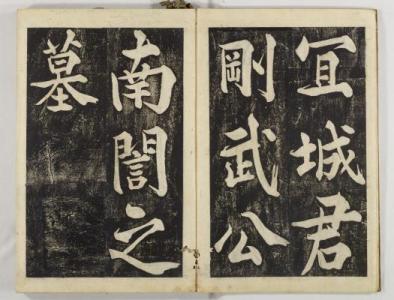 宜城君
剛武公
南誾之
墓